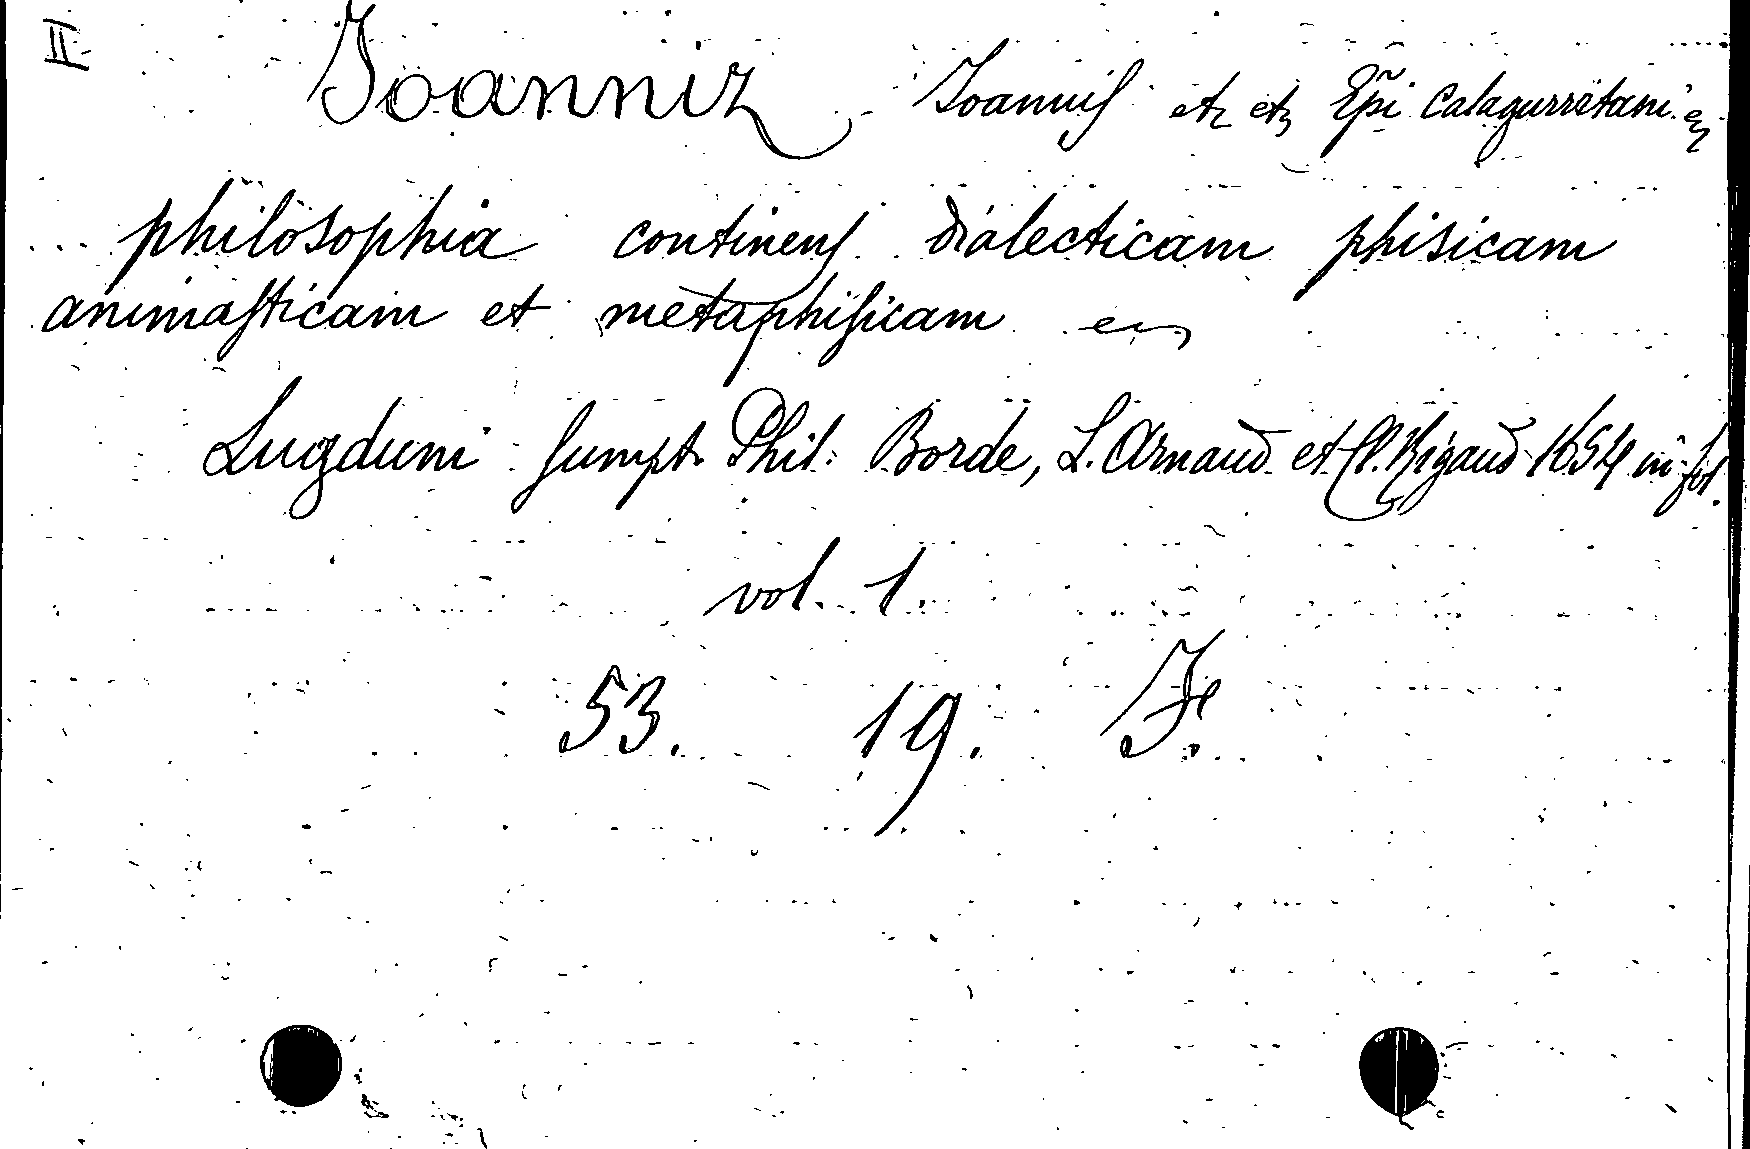 II
Joanniz Joannis etz etz Epĩ Calagurritani
philosophia continens dialecticam phisicam
animasticam et metaphisicam
Lugduni sumpt. Phil: Borde, L. Arnaud et Cl. Rigaud 1654 in fol.
vol. 1.
53. 19. F.